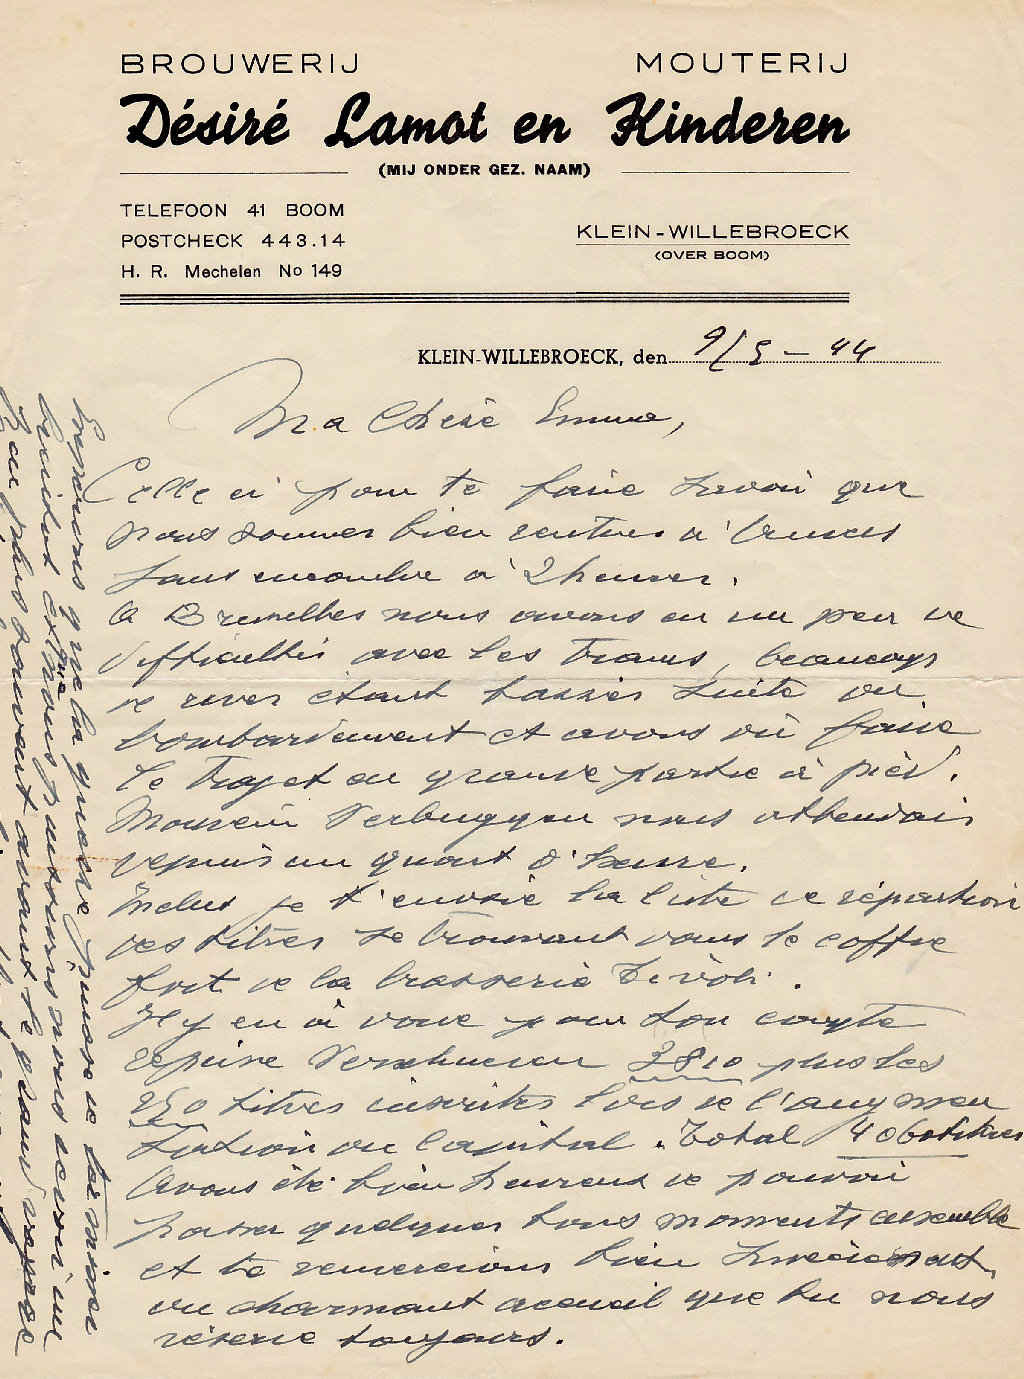 BROUWERIJ MOUTERIJ
Désiré Lamot en Kinderen
(MIJ ONDER GEZ. NAAM)
TELEFOON 41 BOOM
POSTCHECK 443.14
H. R. Mechelen No 149
KLEIN-WILLEBROECK
(OVER BOOM)
KLEIN-WILLEBROECK, den 9/5 - 44
Ma Chère Emma,
Celle ci pour te faire savoir que
nous sommes bien rentrés à
sans encombre à 2 heures.
A Bruxelles nous avons eu un peu de
difficultés avec les trams, beaucoup
de rues étant barrées suite du
bombardement et avons dû faire
le trajet en grande partie à pied.
Monsieur Verbruggen nous attendais
depuis un quart d'heure.
Inclus je t'envoie la liste de répartition
des titres se trouvant dans le coffre
fort de la brasserie Tivoli.
Il y en à donc pour ton compte
2810 plus les
250 titres inscrites lors de l'augmen
tation du capital. Total 4060 titres
Avons été bien heureux de pouvoir
passer quelques bons moments ensemble
et te remercions bien sincèrement
du charmant accueil que tu nous
réserve toujours.
Espérons que la guerre puisse se terminer
bientot et que nous puissions nous revoir un
peu plus souvent avant le grand